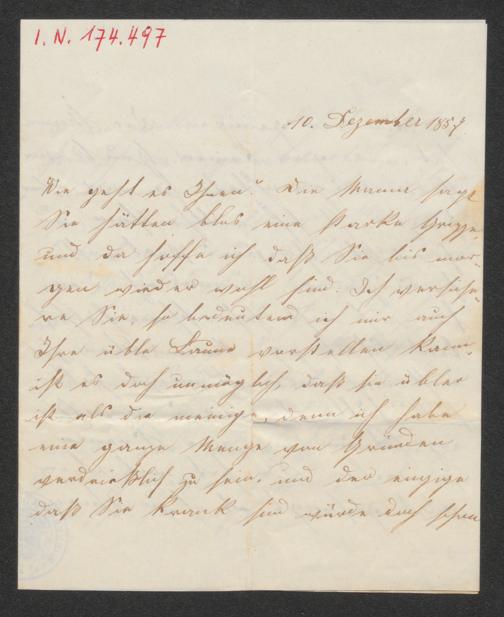 I. N. 174.497
10. Dezember 1857
Wie geht es Ihnen? Die Mama sagt
Sie hätten blos eine starke Grippe,
und da hoffe ich daß Sie bis mor-
gen wieder wohl sind. Ich versiche-
re Sie, so bedeutend ich mir auch
Ihre üble Laune vorstellen kann,
ist es doch unmöglich daß sie übler
ist als die meinige, denn ich habe
eine ganze Menge von Gründen
verdrießlich zu sein, und der einzige
daß Sie krank sind würde doch schon